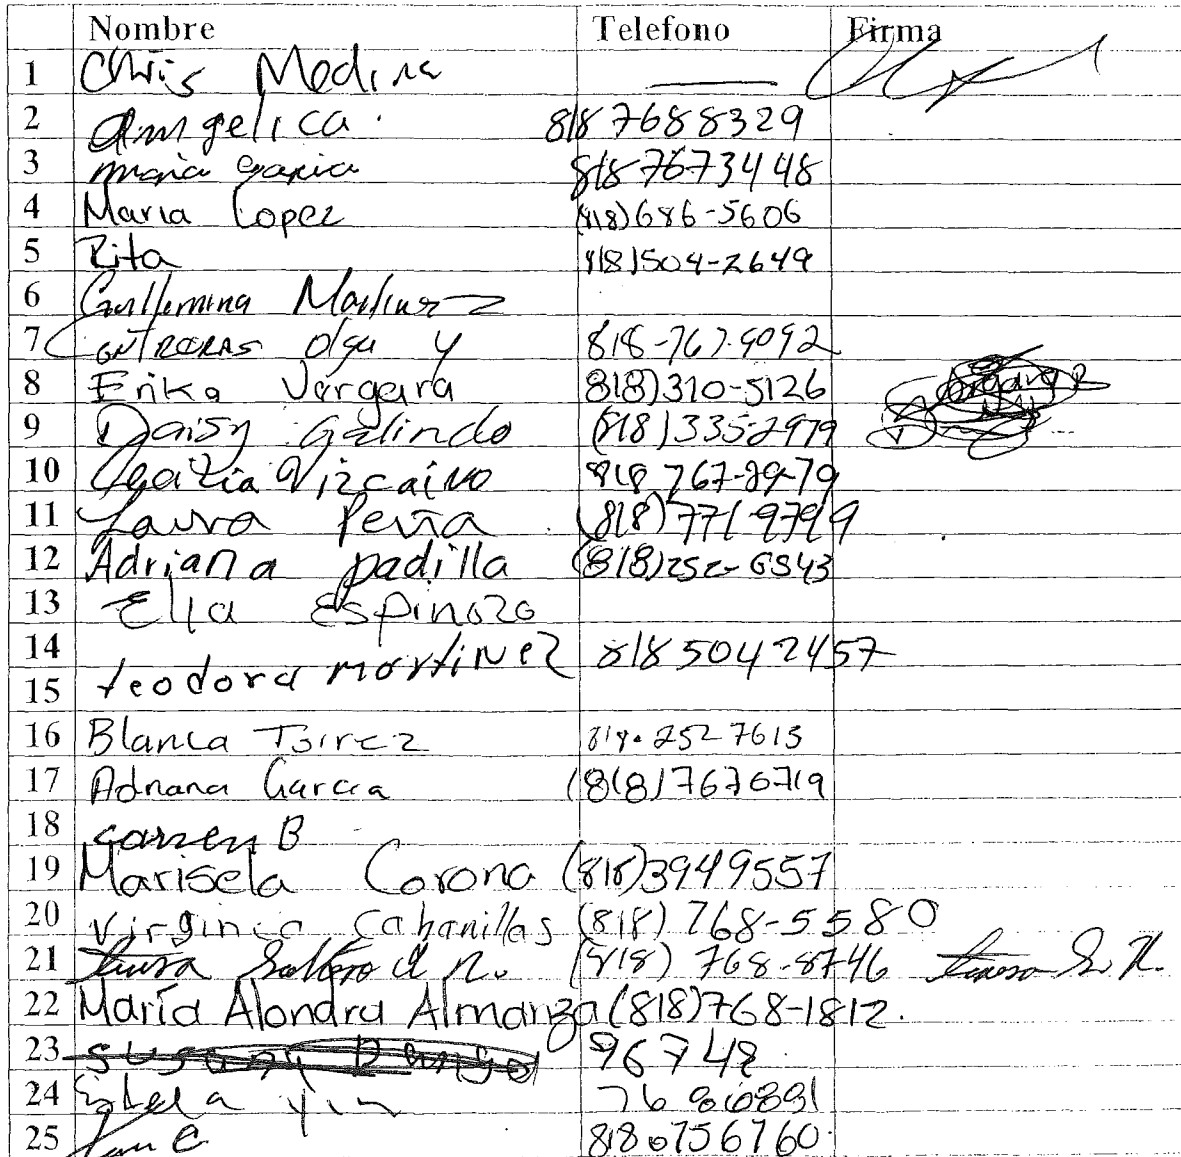 Nombre Telefono Firma
1 Chris Medina
2 Angelica. 818 7688329
3 Maria Garcia 818 7673448
4 Maria Lopez (818)686-5606
5 Rita 818)504-2649
6 Guillermina Martinez
7 CONTRERAS Olga Y 818-767-9092
8 Erika Vergara 818)310-5126
9 Daisy Galindo (818)335-2979
10 Vizcaino 818 767-29-79
11 Laura Peña (818)7719799
12 Adriana padilla (818)252-6543
13 Elia Espinozo
14 teodora martinez 818 5042457
15
16 Blanca 818-252 7613
17 Adriana Garcia (818)7670719
18 Carmen B
19 Marisela Corona (818)3949557
20 Virginia Cabanillas (818) 768-5580
21 (818) 768-8746
22 María Alondra Almanza (818)768-1812.
23 96748
24
25 818 0756760.